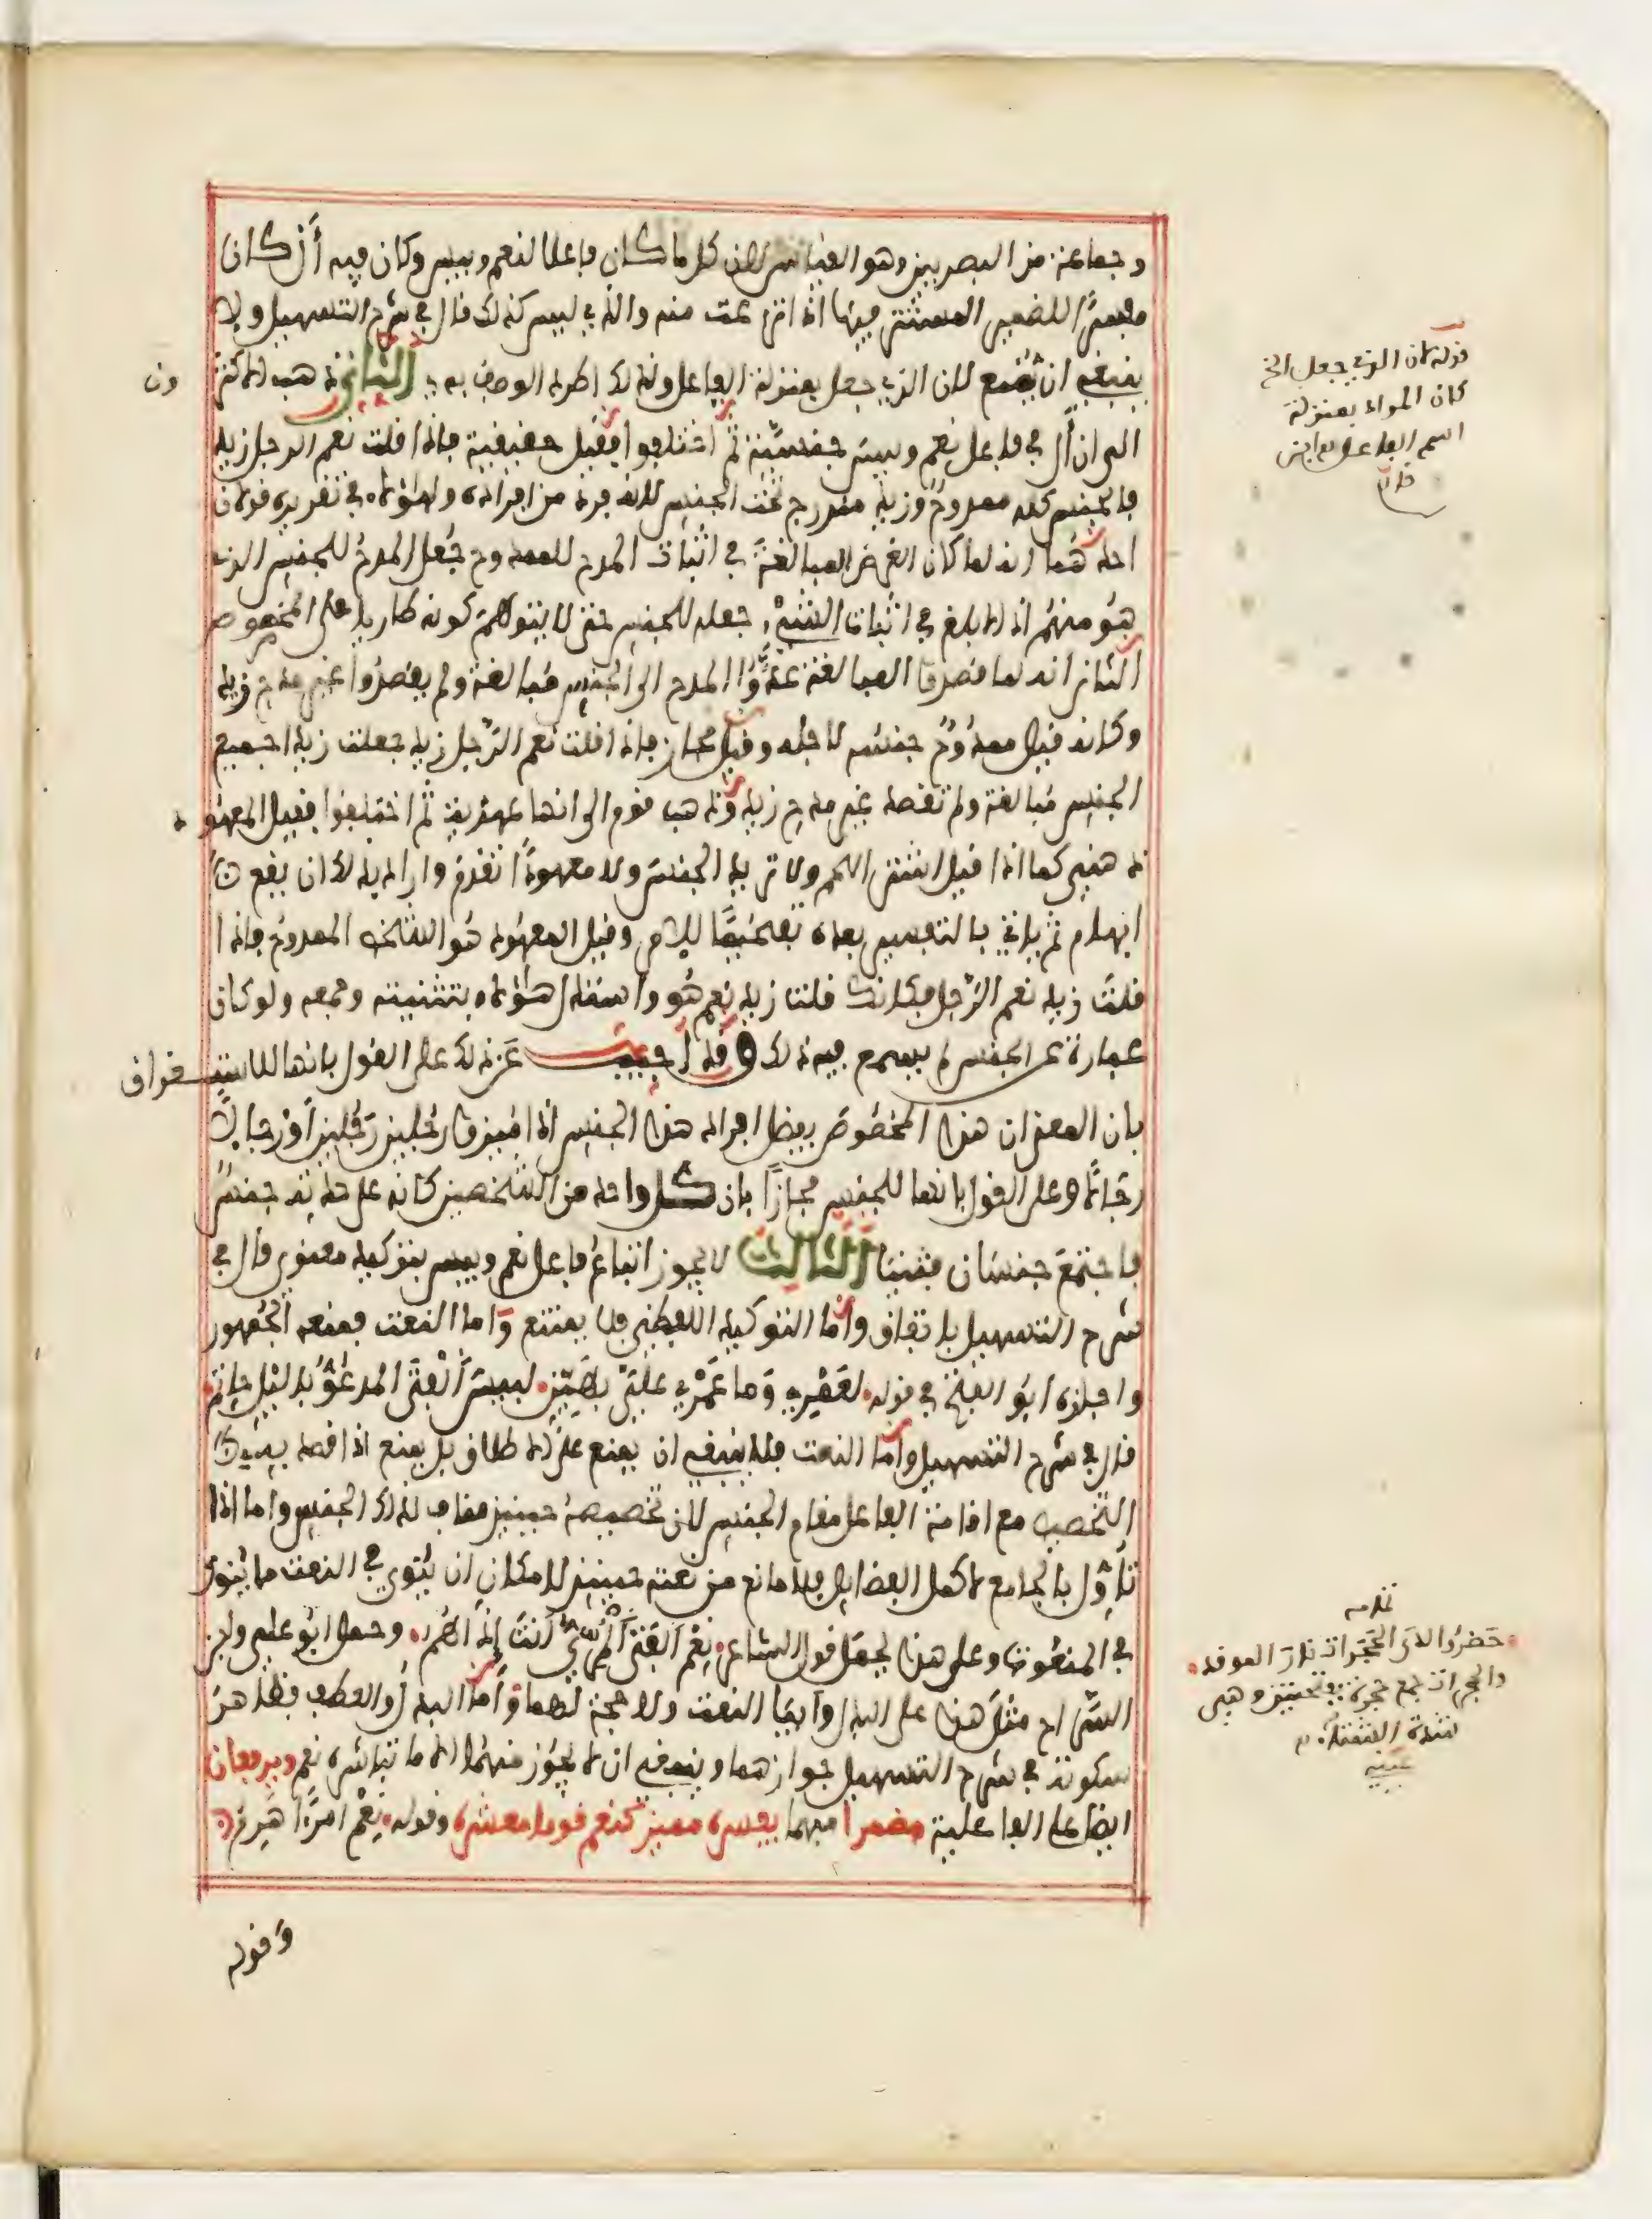 وجماعة من البصريين وهو القياس لان كل ما كان فاعلا لنعم وبيس وكان فيه أل كان
مفسرا للضمير المستتر فيها اذا نزعت منه والذي ليس كذلك قال في شرح التسهيل ولا
ينبغي ان يمنع لان الذي جعل بمنزلة الفاعل ولذلك اطرد الوصف به الثاني ذهب الاكثرون
الى ان أل في فاعل نعم وبيس جنسية ثم اختلفوا فقيل حقيقية فاذا قلت نعم الرجل زيد
فالجنس كله ممدوح وزيد مندرج تحت الجنس لانه فرد من افراده ولهؤلاء في تقريره قولان
احدهما انه لما كان الغرض المبالغة في اثبات المدح للممدوح جعل المدح للجنس الذي
هو منهم اذ الابلغ في اثبات الشيء جعله للجنس حتى لا يتوهم كونه طاريا على المخصوص
الثاني انه لما قصدوا المبالغة عدوا المدح الى الجنس مبالغة ولم يقصدوا غير مدح زيد
وكانه قيل ممدوح جنسه لاجله وقيل مجاز فاذا قلت نعم الرجل زيد جعلت زيدا جميع
الجنس مبالغة ولم تقصد غير مدح زيد وذهب قوم الى انها عهدية ثم اختلفوا فقيل المعهود
ذهني كما اذا قيل اشتر اللحم ولا تريد الجنس ولا معهودا تقدم واراد بذلك ان يقع
ابهام ثم ياتي بالتفسير بعده تفخيما للامر وقيل المعهود هو الشخص الممدوح فاذا
قلت زيد نعم الرجل فكانك قلت زيد نعم هو واستدل هؤلاء بتثنيته وجمعه ولو كان
عبارة عن الجنس لم يسمع فيه ذلك وقد اجيب عن ذلك على القول بانها للاستغراق
بان المعنى ان هذا المخصوص يفضل افراد هذا الجنس اذا ميزوا رجلين رجلين او رجالا
رجالا وعلى القول بانها للجنس مجازا بان كل واحد من الشخصين كانه على حدته جنس
فاجتمع جنسان فثنيا الثالث لا يجوز اتباع فاعل نعم وبيس بتوكيد معنوي قال في
شرح التسهيل باتفاق واما التوكيد اللفظي فلا يمتنع واما النعت فمنعه الجمهور
واجازه ابو الفتح في قوله لعمري وما عمري علي بهين لبيس الفتى المدعو بالليل حاتم
قال في شرح التسهيل واما النعت فلا ينبغي ان يمنع على الاطلاق بل يمنع اذا قصد به
التخصيص مع اقامة الفاعل مقام الجنس لان تخصيصه حينيذ مناف لذلك الجنس واما اذا
تاول بالجامع لاكمل الفضايل فلا مانع من نعته حينيذ لامكان ان ينوي في النعت ما ينوى
في المنعوت وعلى هذا يحمل قول الشاعر نعم الفتى المري انت اذا هم وحمل ابو علي وابن
السراج مثل هذا على البدل وابيا النعت ولا حجة لهما واما البدل والعطف فظاهر
سكوته في شرح التسهيل جوازهما وينبغي ان لا يجوز منهما الا ما تباشره نعم ويرفعان
ايضا على الفاعلية مضمرا مبهما يفسره مميز كنعم قوما معشره وقوله نعم امرأ هرم
وقوله
قوله لان الذي جعل الخ
كان المراد بمنزلة
اسم الفاعل
تمامه
حضروا لدى الحجرات نار الموقد
والحجرات جمع حجرة بفتحتين وهي
شدة الشتاء